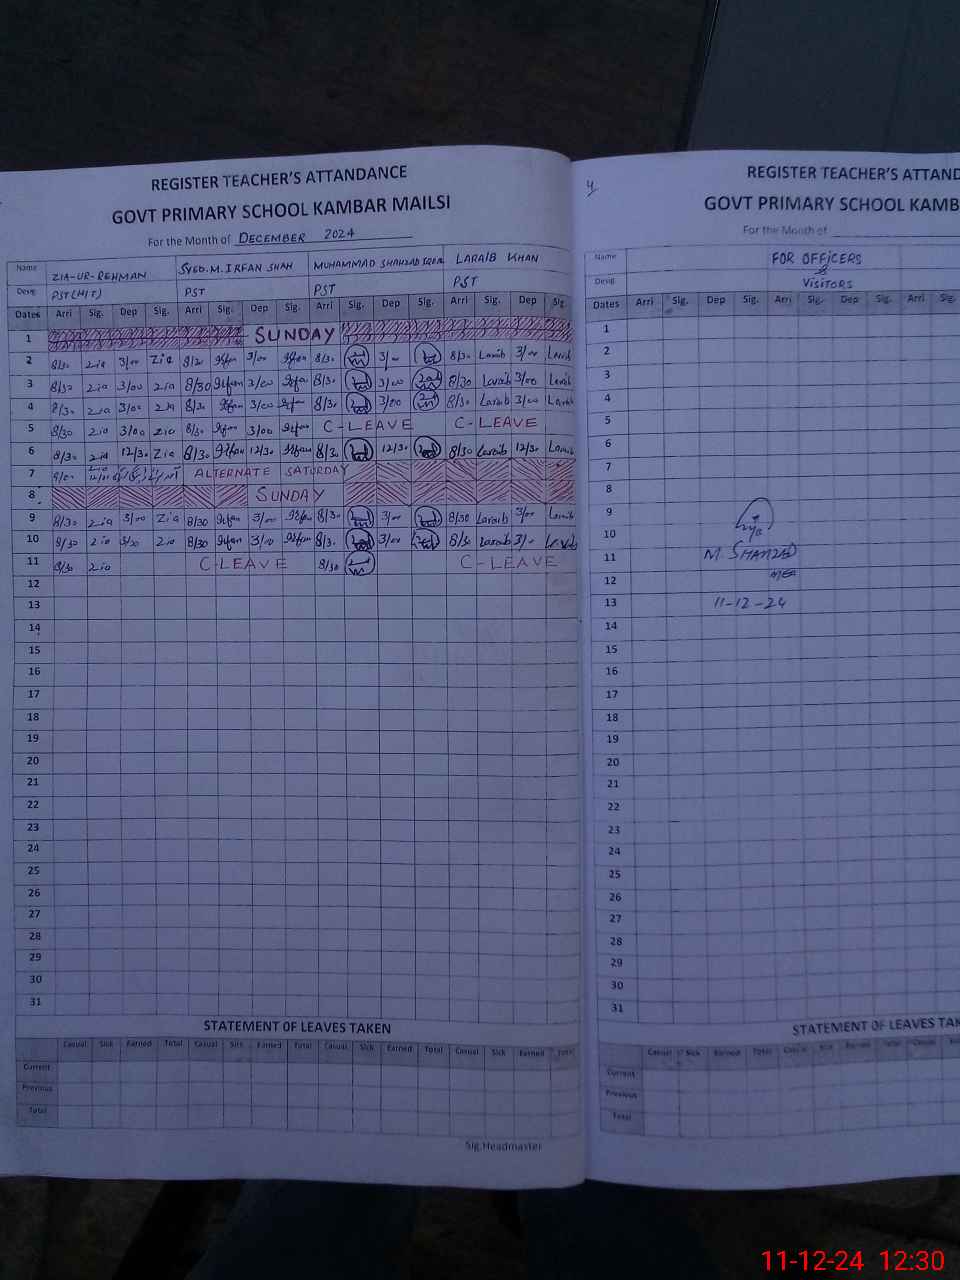 REGISTER TEACHER'S ATTANDANCE
GOVT PRIMARY SCHOOL KAMBAR MAILSI
For the Month of DECEMBER 2024
Name ZIA-UR-REHMAN SYED.M.IRFAN SHAH MUHAMMAD SHAHZAD LARAIB KHAN
Desig PST(H/T) PST PST PST
Dates Arri Sig. Dep Sig. Arri Sig. Dep Sig. Arri Sig. Dep Sig. Arri Sig. Dep Sig.
1 SUNDAY
2 8/30 zia 3/00 Zia 8/30 Irfan 3/00 Irfan 8/30 3/00 8/30 Laraib 3/00 Laraib
3 8/30 zia 3/00 zia 8/30 Irfan 3/00 Irfan 8/30 3/00 8/30 Laraib 3/00 Laraib
4 8/30 zia 3/00 zia 8/30 Irfan 3/00 Irfan 8/30 3/00 8/30 Laraib 3/00 Laraib
5 8/30 zia 3/00 Zia 8/30 Irfan 3/00 Irfan C-LEAVE C-LEAVE
6 8/30 zia 12/30 Zia 8/30 Irfan 12/30 Irfan 8/30 12/30 8/30 Laraib 12/30 Laraib
7 ALTERNATE SATURDAY
8 SUNDAY
9 8/30 zia 3/00 Zia 8/30 Irfan 3/00 Irfan 8/30 3/00 8/30 Laraib 3/00 Laraib
10 8/30 zia zia 8/30 Irfan 3/00 Irfan 8/30 3/00 8/30 Laraib Laraib
11 8/30 zia C-LEAVE 8/30 C-LEAVE
12
13
14
15
16
17
18
19
20
21
22
23
24
25
26
27
28
29
30
31
STATEMENT OF LEAVES TAKEN
Casual Sick Earned Total Casual Sick Earned Total Casual Sick Earned Total Casual Sick Earned Total
Current
Previous
Total
Sig.Headmaster
4
REGISTER TEACHER'S ATTAND
GOVT PRIMARY SCHOOL KAMB
For the Month of
Name FOR OFFICERS
&
Desig VISITORS
Dates Arri Sig. Dep Sig. Arri Sig. Dep Sig. Arri
1
2
3
4
5
6
7
8
9
10
11 M. SHAHZAD
12 MEA
13 11-12-24
14
15
16
17
18
19
20
21
22
23
24
25
26
27
28
29
30
31
STATEMENT OF LEAVES TAK
Casual Sick Earned Total Casual Sick Earned Total Casual
Current
Previous
Total
11-12-24 12:30